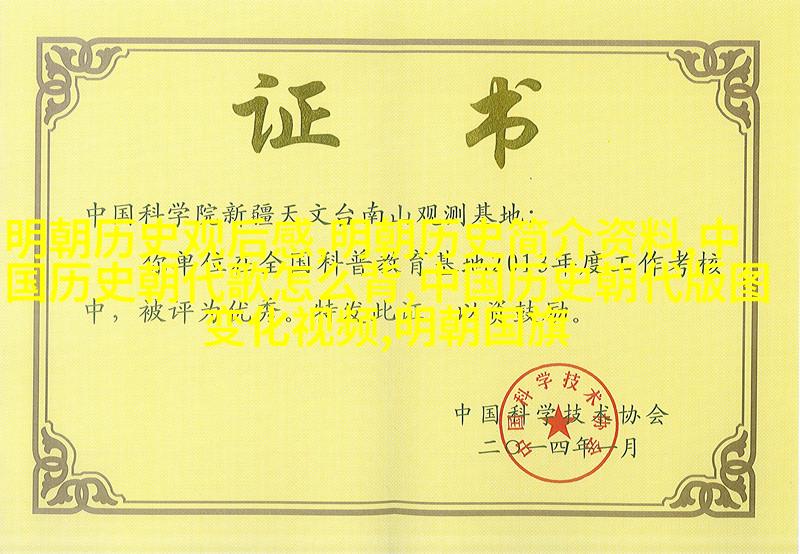 证书
中国科学院新疆天文台南山观测基地：
明朝历史观后感,明朝历史简介资料,中
你单位在全国科普教育基地2013年度工作考核
国历史朝代歌怎么背,中国历史朝代版图
中，被评为优秀。特发此证，以资鼓励。
变化视频,明朝国旗
中国科学技术协会
二〇一四年一月
中国科学技术协会